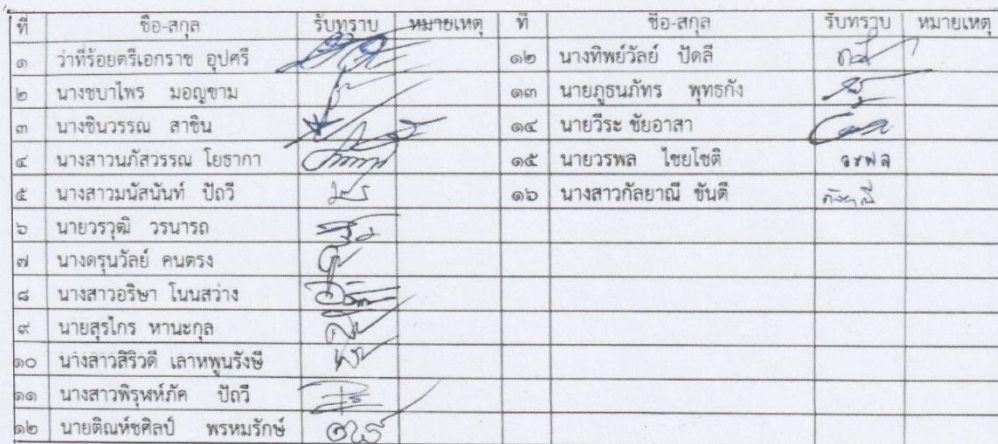 ที่ ชื่อ-สกุล รับทราบ หมายเหตุ ที่ ชื่อ-สกุล รับทราบ หมายเหตุ
๑ ว่าที่ร้อยตรีเอกราช อุปศรี ๑๒ นางทิพย์วัลย์ ปัดลี
๒ นางชบาไพร มอญขาม ๑๓ นายภูธนภัทร พุทธกัง
๓ นางชินวรรณ สาชิน ๑๔ นายวีระ ชัยอาสา
๔ นางสาวนภัสวรรณ โยธากา ๑๕ นายวรพล ไชยโชติ วรพล
๕ นางสาวมนัสนันท์ ปัถวี ๑๖ นางสาวกัลยาณี ขันตี
๖ นายวรวุฒิ วรนารถ
๗ นางดรุนวัลย์ คนตรง
๘ นางสาวอริษา โนนสว่าง
๙ นายสุรไกร หานะกุล
๑๐ นางสาวสิริวดี เลาหพูนรังษี
๑๑ นางสาวพิรุฬห์ภัค ปัถวี
๑๒ นายติณห์ชศิลป์ พรหมรักษ์